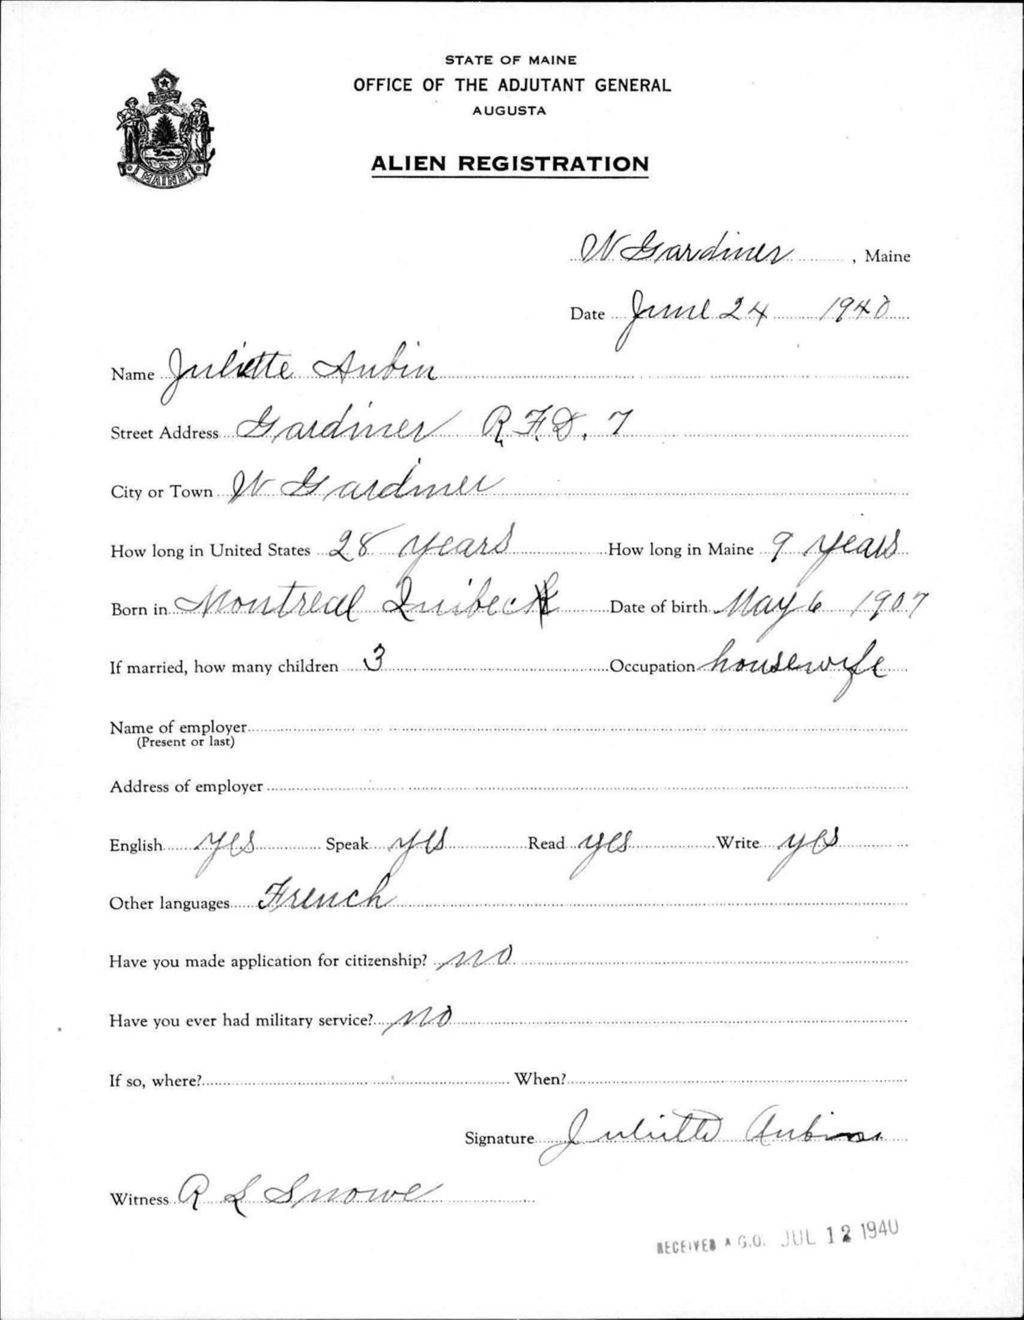 STATE OF MAINE
OFFICE OF THE ADJUTANT GENERAL
AUGUSTA
ALIEN REGISTRATION
MAINE
W Gardiner, Maine
Date June 24 1940
Name Juliette Aubin
Street Address Gardiner R.F.D. 7
City or Town W Gardiner
How long in United States 28 years How long in Maine 9 years
Born in Montreal Quibeck Date of birth May 6 1907
If married, how many children 3 Occupation housewife
Name of employer
(Present or last)
Address of employer
English yes Speak yes Read yes Write yes
Other languages French
Have you made application for citizenship? no
Have you ever had military service? no
If so, where? When?
Signature Juliette Aubin
Witness R L Snowe
RECEIVED A.G.O. JUL 12 1940